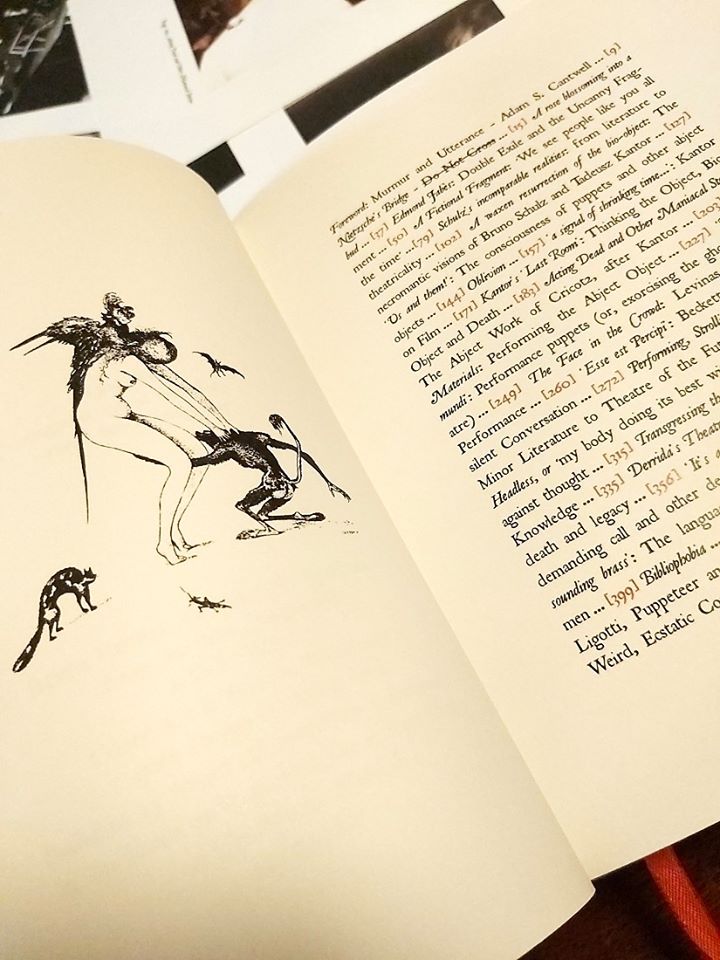 Foreword: Murmur and Utterance - Adam S. Cantwell ... [9]
Nietzsche's Bridge - Do Not Cross ... [15] A rose blossoming into a
bud ... [37] Edmond Jabès: Double Exile and the Uncanny Frag-
ment ... [50] A Fictional Fragment: 'We see people like you all
the time' ...[79] Schulz's incomparable realities: from literature to
theatricality ... [102] A waxen resurrection of the bio-object: The
necromantic visions of Bruno Schulz and Tadeusz Kantor ... [127]
'Us and them!': The consciousness of puppets and other abject
objects ... [144] Oblivion ... [157] 'a signal of shrinking time...': Kantor
on Film ... [171] Kantor's 'Last Room': Thinking the Object,
Object and Death ... [183] Acting Dead and Other Maniacal
The Abject Work of Cricot2, after Kantor ... [203]
Materials: Performing the Abject Object ... [227]
mundi': Performance puppets (or, exorcising the
atre) ... [249] The Face in the Crowd: Levinas
Performance ... [260] 'Esse est Percipi': Beckett
silent Conversation ... [272] Performing
Minor Literature to Theatre of the
Headless, or 'my body doing its best
against thought ... [315] Transgressing
Knowledge ... [335] Derrida's
death and legacy ... [356] 'It's a
demanding call and other
sounding brass': The
men ... [399] Bibliophobia ...
Ligotti, Puppeteer
Weird, Ecstatic